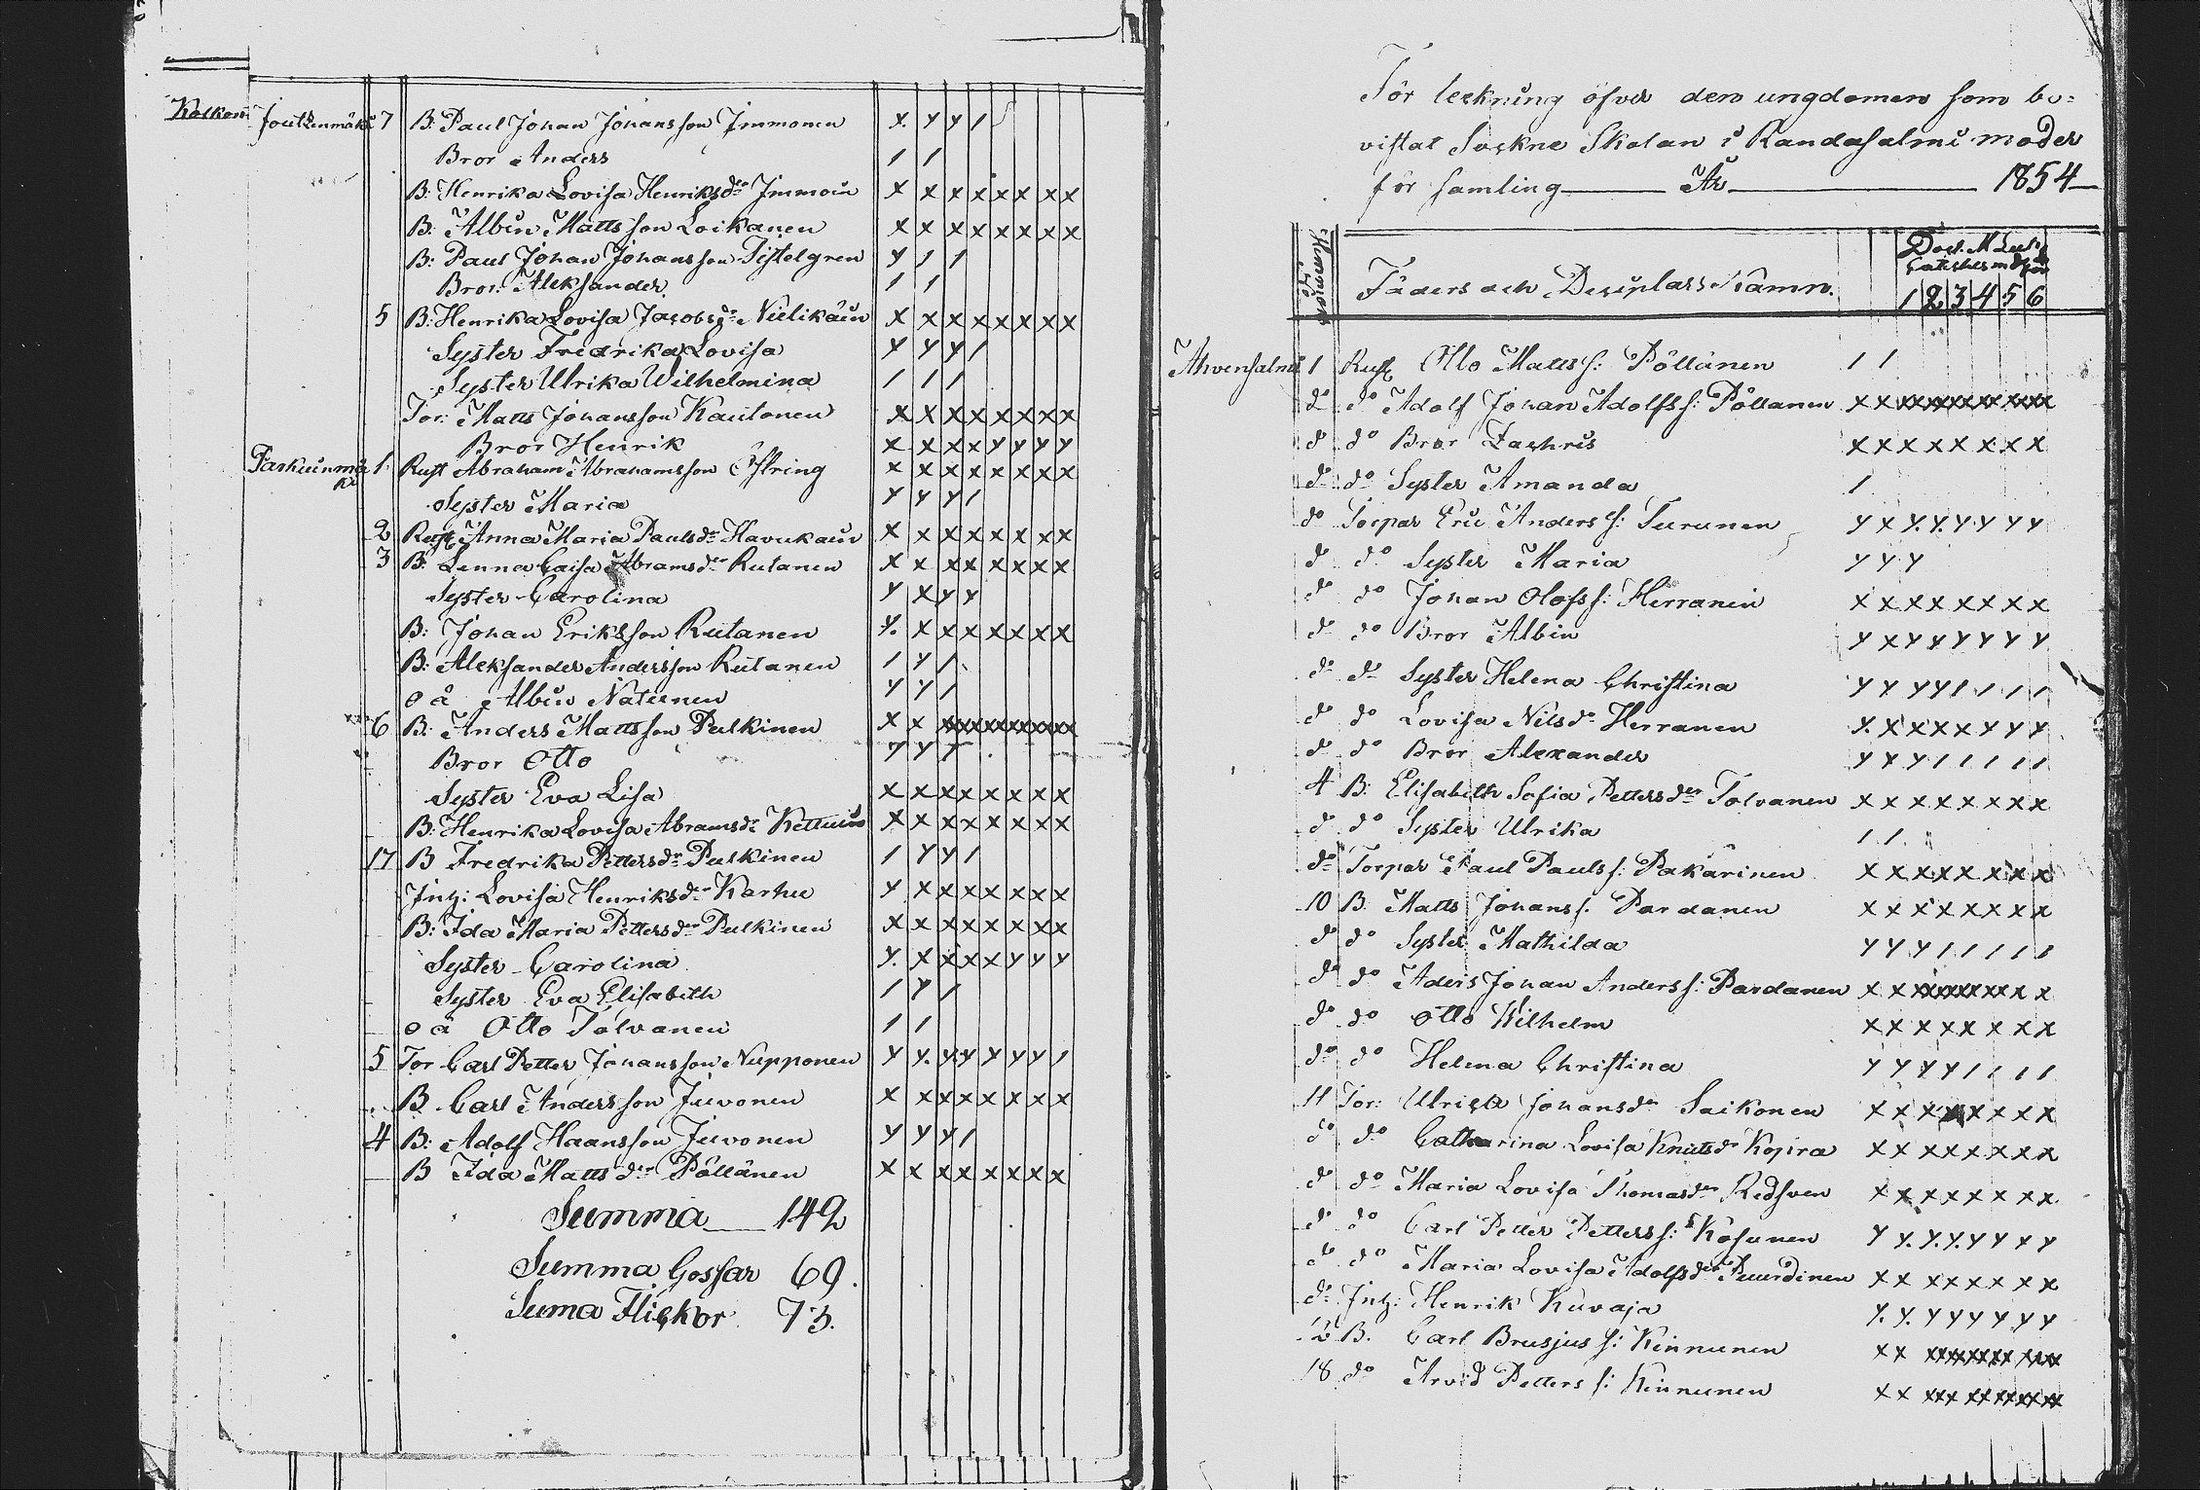 Kolkon Joutzenmäki 7 B. Paul Johan Johansson Immonen x y y 1
Bror Anders 1 1
B: Henrika Lovisa Henriksdr Immoin x x x x x x x x
B: Albin Mattsson Loikanen x x x x x x x x
B: Paul Johan Johansson Tistelgren y 1 1
Bror. Aleksander 1 1
5 B: Henrika Lovisa Jacobsdr Nielikäin x x x x x x x x
Syster Fredrika Lovisa y y y 1
Syster Ulrika Wilhelmina 1 1 1
Tor: Matts Johansson Kautonen x x x x x x x x
Bror Henrik x x x x y y y y
Parkuinmäki 1 Rust Abraham Abrahamsson Östring x x x x x x x x
Syster Maria y y y 1
2 Rust Anna Maria Paulsdr Havukain x x x x x x x x
3 B. Lenna Caisa Abramsdr Rutanen x x x x x x x x
Syster Carolina y x y y
B: Johan Eriksson Rutanen y. x x x x x x x
B: Aleksander Andersson Rutanen 1 y 1
o ä Albin Natunen y y 1
6 B: Anders Mattsson Pulkinen x x xxxxxxxxxx
Bror Otto y y y
Syster Eva Lisa x x x x x x x x
B: Henrika Lovisa Abramsdr Kettuin x x x x x x x x
17 B Fredrika Pettersdr Pulkinen 1 y y 1
Inh: Lovisa Henriksdr Karhu y x x x x x x x
B: Ida Maria Pettersdr Pulkinen x x x x x x x x
Syster Carolina y. x x x x y y y
Syster Eva Elisabeth 1 y 1
o ä Otto Tolvanen 1 1
5 Tor Carl Petter Johansson Nupponen y y. y y y y y 1
B. Carl Andersson Juvonen x x x x x x x x
4 B: Adolf Haansson Juvonen y y y 1
B Ida Mattsdr Pöllänen x x x x x x x x
Summa 149
Summa Gossar 69.
Suma Flickor 73.
För teckning öfver den ungdomen som be=
vistat Sockne Skolan i Randasalmi moder
församling År 1854
Fäders och Desiplars Namn.
1 2 3 4 5 6
Ahvensalmi 1 Rust Otto Matts s: Pöllänen 1 1
do do Adolf Johan Adolfs s: Pöllanen x x xxxxxxxx xxxx
d do Bror Zachris x x x x x x x x
d do Syster Amanda 1
do Torpar Eric Anders s: Turunen y x y. y. y y y y
d do Syster Maria y y y
d do Johan Olofs s: Herranen x x x x x x x x
d do Bror Albin y x y y y y y y
d do Syster Helena Christina y y y y 1 1 1 1
d do Lovisa Nilsdr Herranen y. x x x x y y y
d do Bror Alexander y y y 1 1 1 1 1
4 B: Elisabeth Sofia Pettersdr Tolvanen x x x x x x x x
d do Syster Ulrika 1 1
do Torpar Paul Pauls s: Pakarinen x x x x x x x x
10 B. Matts Johans s. Pardanen x x x x x x x x
d do Syster Mathilda y y y 1 1 1 1 1
d do Johan Anders s: Pardanen x x xxxxxxx x x
d do Otto Wilhelm x x x x x x x x
do do Helena Christina y y y y 1 1 1 1
11 Tor: Johansdr Saikonen x x x x x x x x
d do Catharina Lovisa Knutsdr Kopira x x x x x x x x
d do Maria Lovisa Thomasdr Redsven x x x x x x x x
d do Carl Petter Petters s: Kosunen y y. y. y. y y y y
d do Maria Lovisa Adolfsdr x x x x x x x x
do Inh: Henrik Kuvaja y. y. y y y y y y
B. Carl Brusjus s: Kinnunen x x xxxxxxxx xxxx
18 do Arvid Petters s: Kinnunen x x xxx xxxxxxxx